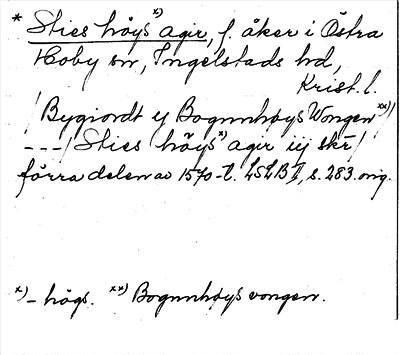 * Sties höys x) agir, f. åker i Östra
Hoby sn, Ingelstads hd,
Krist. l.
/ Bygiordt y Bognnhöys Wongen xx) /
--- / Sties höys x) agir iij skr /
förra delen av 1570-t. LSLB I, s. 283. orig.
x) – högs. xx) Bognnhöys vongen.